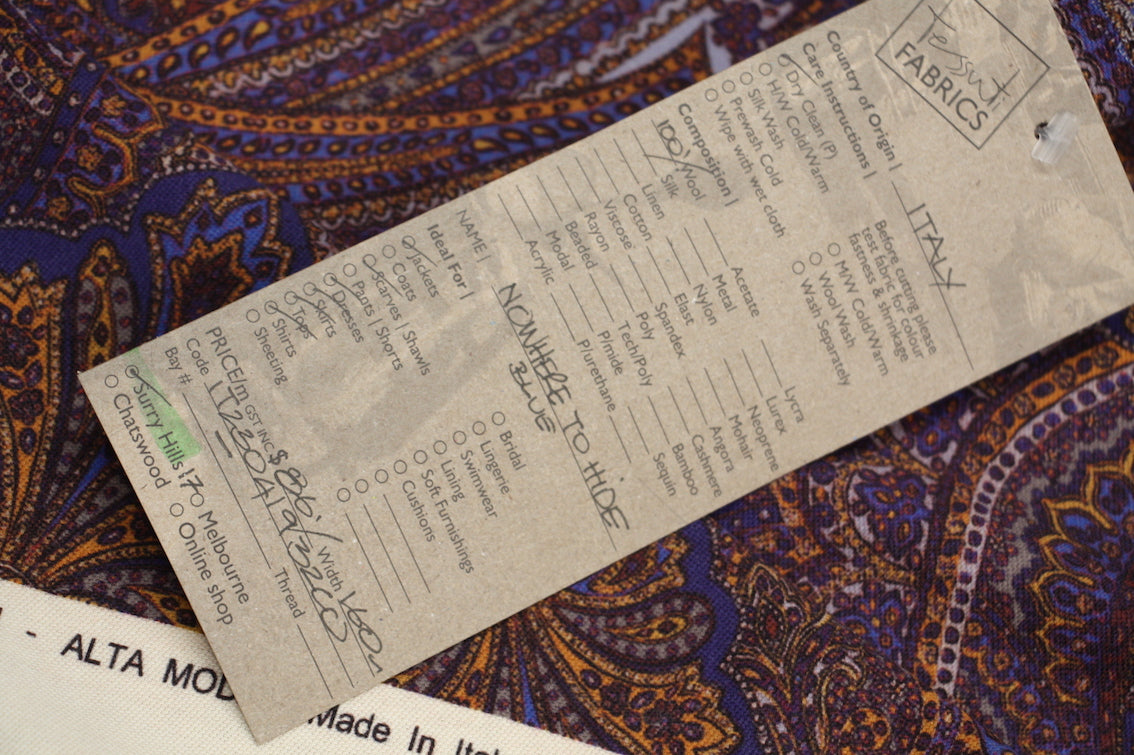 Tessuti
FABRICS
Country of Origin | ITALY
Care Instructions |
Dry Clean (P)
H/W Cold/Warm
Silk Wash
Prewash Cold
Wipe with wet cloth
Before cutting please
test fabric for colour
fastness & shrinkage
M/W Cold/Warm
Wool Wash
Wash Separately
Composition |
100% Wool
Silk
Linen
Cotton
Viscose
Rayon
Beaded
Modal
Acrylic
Acetate
Metal
Nylon
Elast
Spandex
Poly
Tech/Poly
P/mide
P/urethane
Lycra
Lurex
Neoprene
Mohair
Angora
Cashmere
Bamboo
Sequin
NAME | NOWHERE TO HIDE
BLUE
Ideal For |
Jackets
Coats
Scarves | Shawls
Pants | Shorts
Dresses
Skirts
Tops
Shirts
Sheeting
Bridal
Lingerie
Swimwear
Lining
Soft Furnishings
Cushions
PRICE/m GST INC $86./ Width
Code
Bay #
Thread
Surry Hills
Melbourne
Chatswood
Online shop
- ALTA MOD
Made In Ital